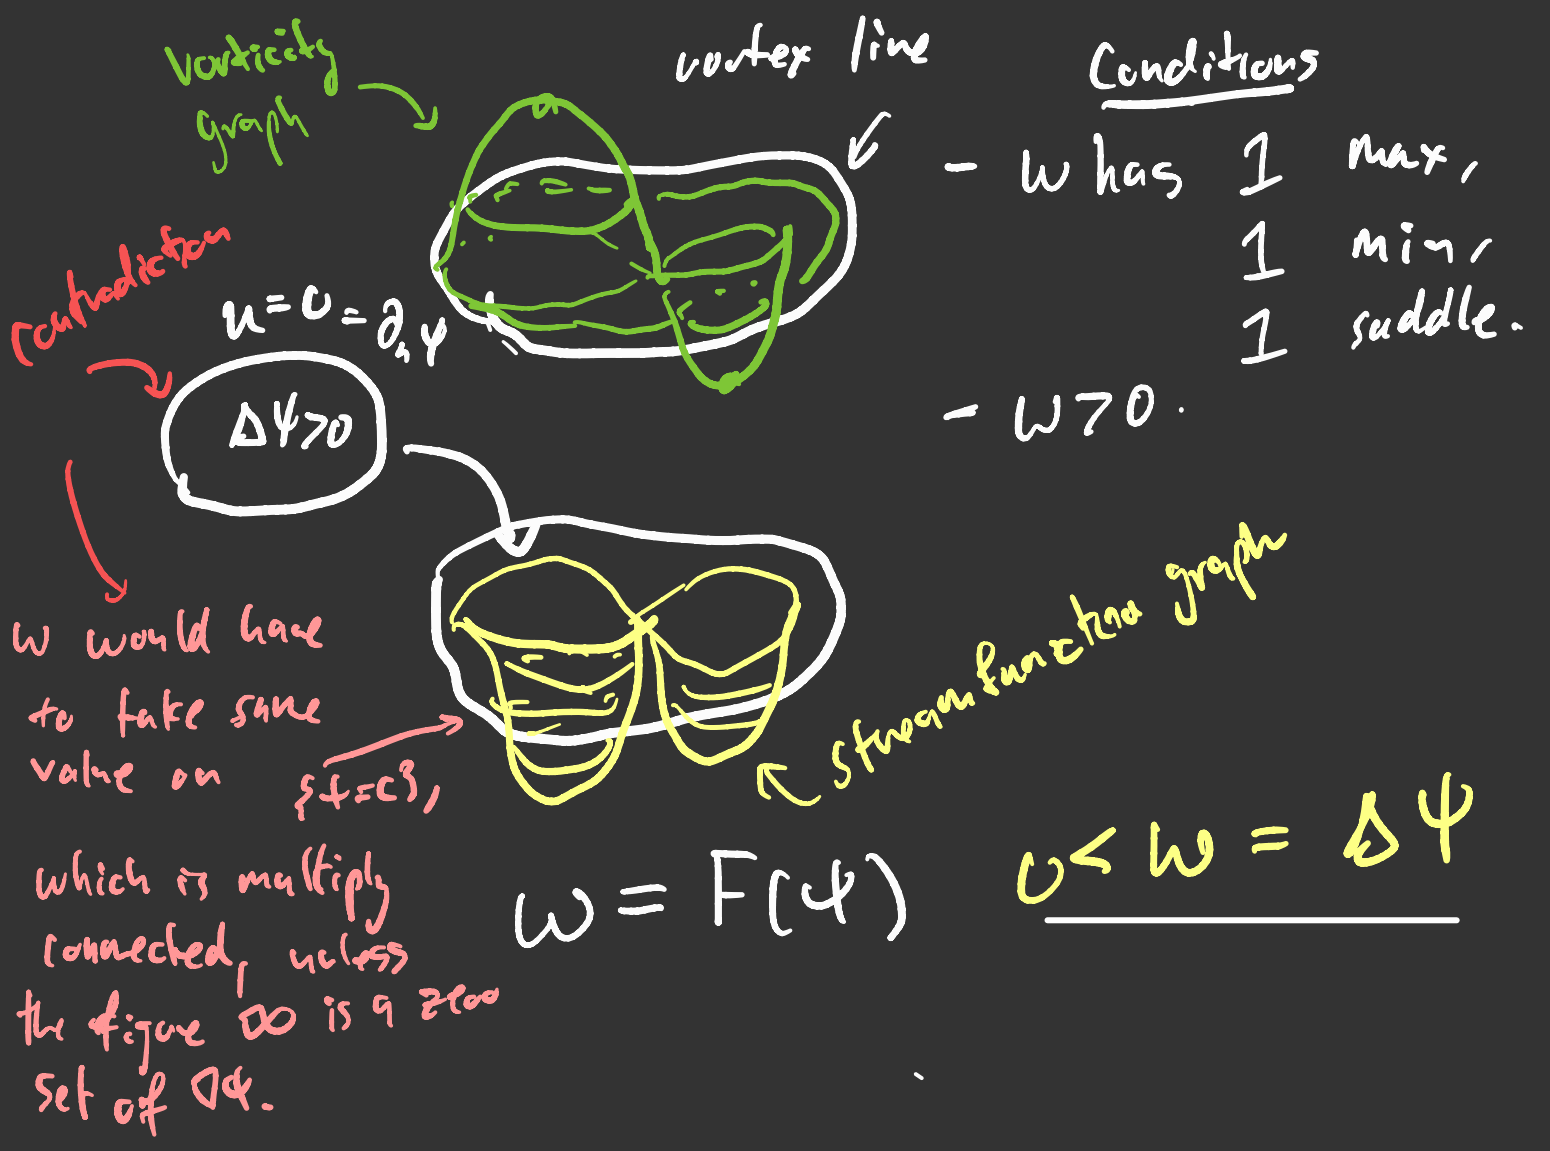 vorticity
graph
vortex line
Conditions
- ω has 1 max,
1 min,
1 saddle.
- ω>0.
contradiction
u=0=∂ₙψ
Δψ>0
ω would have
to take same
value on {ψ=c},
which is multiply
connected, unless
the figure ∞ is a zero
set of ∇ψ.
streamfunction graph
ω = F(ψ)
0<ω = Δψ